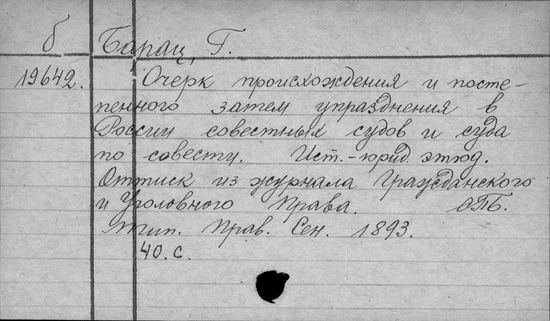 б Барац, Г.
19642. Очерк происхождения и посте-
пенного затем упразднения в
России совестных судов и суда
по совести. Ист.-юрид. этюд.
Оттиск из журнала Гражданского
и Уголовного Права. СПБ.
тип. Прав. Сен. 1893.
40. с.